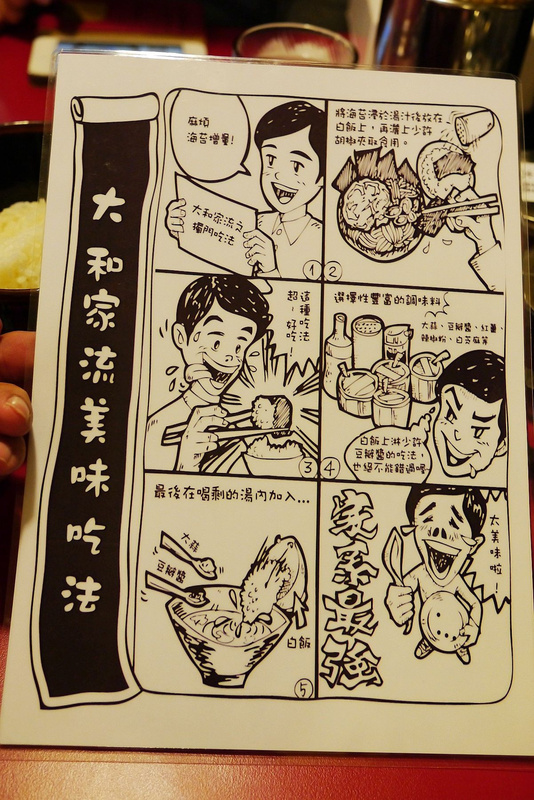 大和家流美味吃法
麻煩
海苔增量!
大和家流之
獨門吃法
1
將海苔浸於湯汁後放在
白飯上,再灑上少許
胡椒夾取食用。
2
這種吃法
超~好吃!
3
選擇性豐富的調味料
大蒜、豆瓣醬、紅薑
辣椒粉、白芝麻等
白飯上淋少許
豆瓣醬的吃法,
也絕不能錯過喔
4
最後在喝剩的湯內加入...
大蒜
豆瓣醬
白飯
5
太美味啦!
家系最強